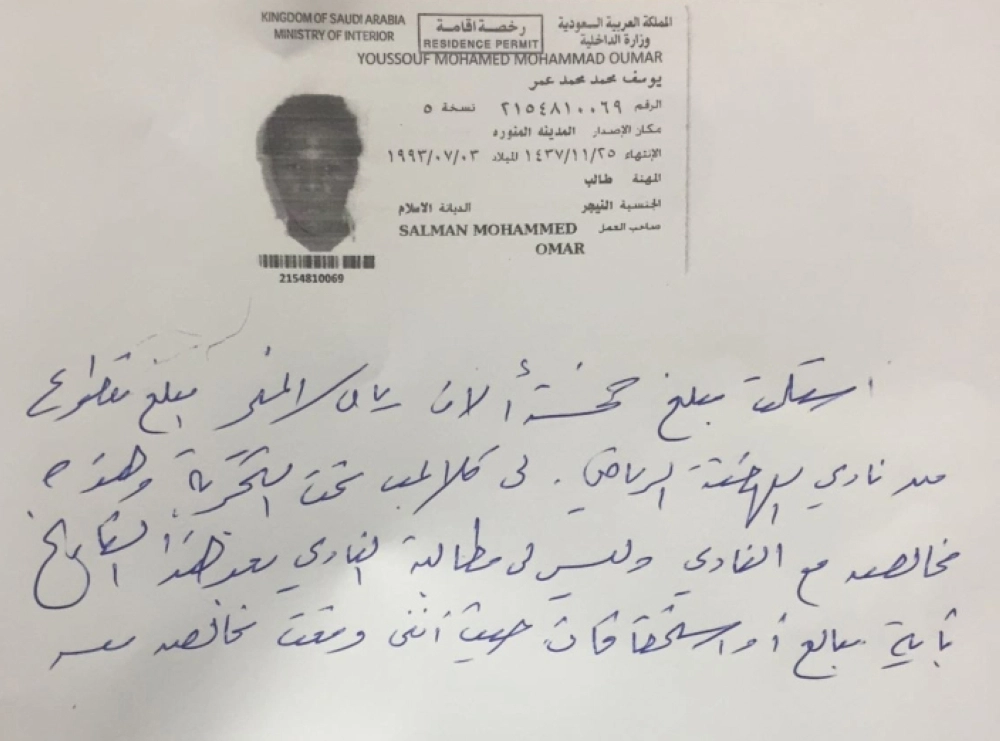 KINGDOM OF SAUDI ARABIA
MINISTRY OF INTERIOR
رخصة اقامة
RESIDENCE PERMIT
المملكة العربية السعودية
وزارة الداخلية
YOUSSOUF MOHAMED MOHAMMAD OUMAR
يوسف محمد محمد عمر
الرقم ٢١٥٤٨١٠٠٦٩ نسخة ٥
مكان الإصدار المدينه المنوره
الإنتهاء ١٤٣٧/١١/٢٥ الميلاد ١٩٩٣/٠٧/٠٣
المهنة طالب
الجنسية النيجر الديانة الاسلام
صاحب العمل SALMAN MOHAMMED
OMAR
2154810069
استلمت مبلغ خمسة ألاف ريال المبلغ مقطوع
من نادي النهضة الرياضي. لي كلاعب تحت التجربة وهذه
مخالصه مع النادي وليس لي مطالبة النادي بعد هذا التاريخ
بأية مبالغ أو استحقاقات حيث أنني وقعت مخالصه معه